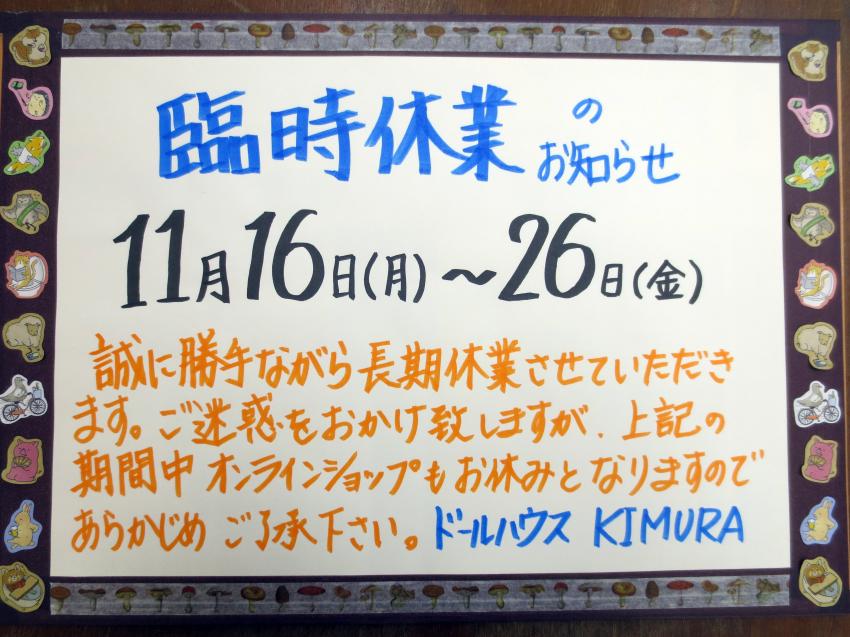 臨時休業のお知らせ
11月16日(月)～26日(金)
誠に勝手ながら長期休業させていただき
ます。ご迷惑をおかけ致しますが、上記の
期間中オンラインショップもお休みとなりますので
あらかじめご了承下さい。ドールハウス KIMURA